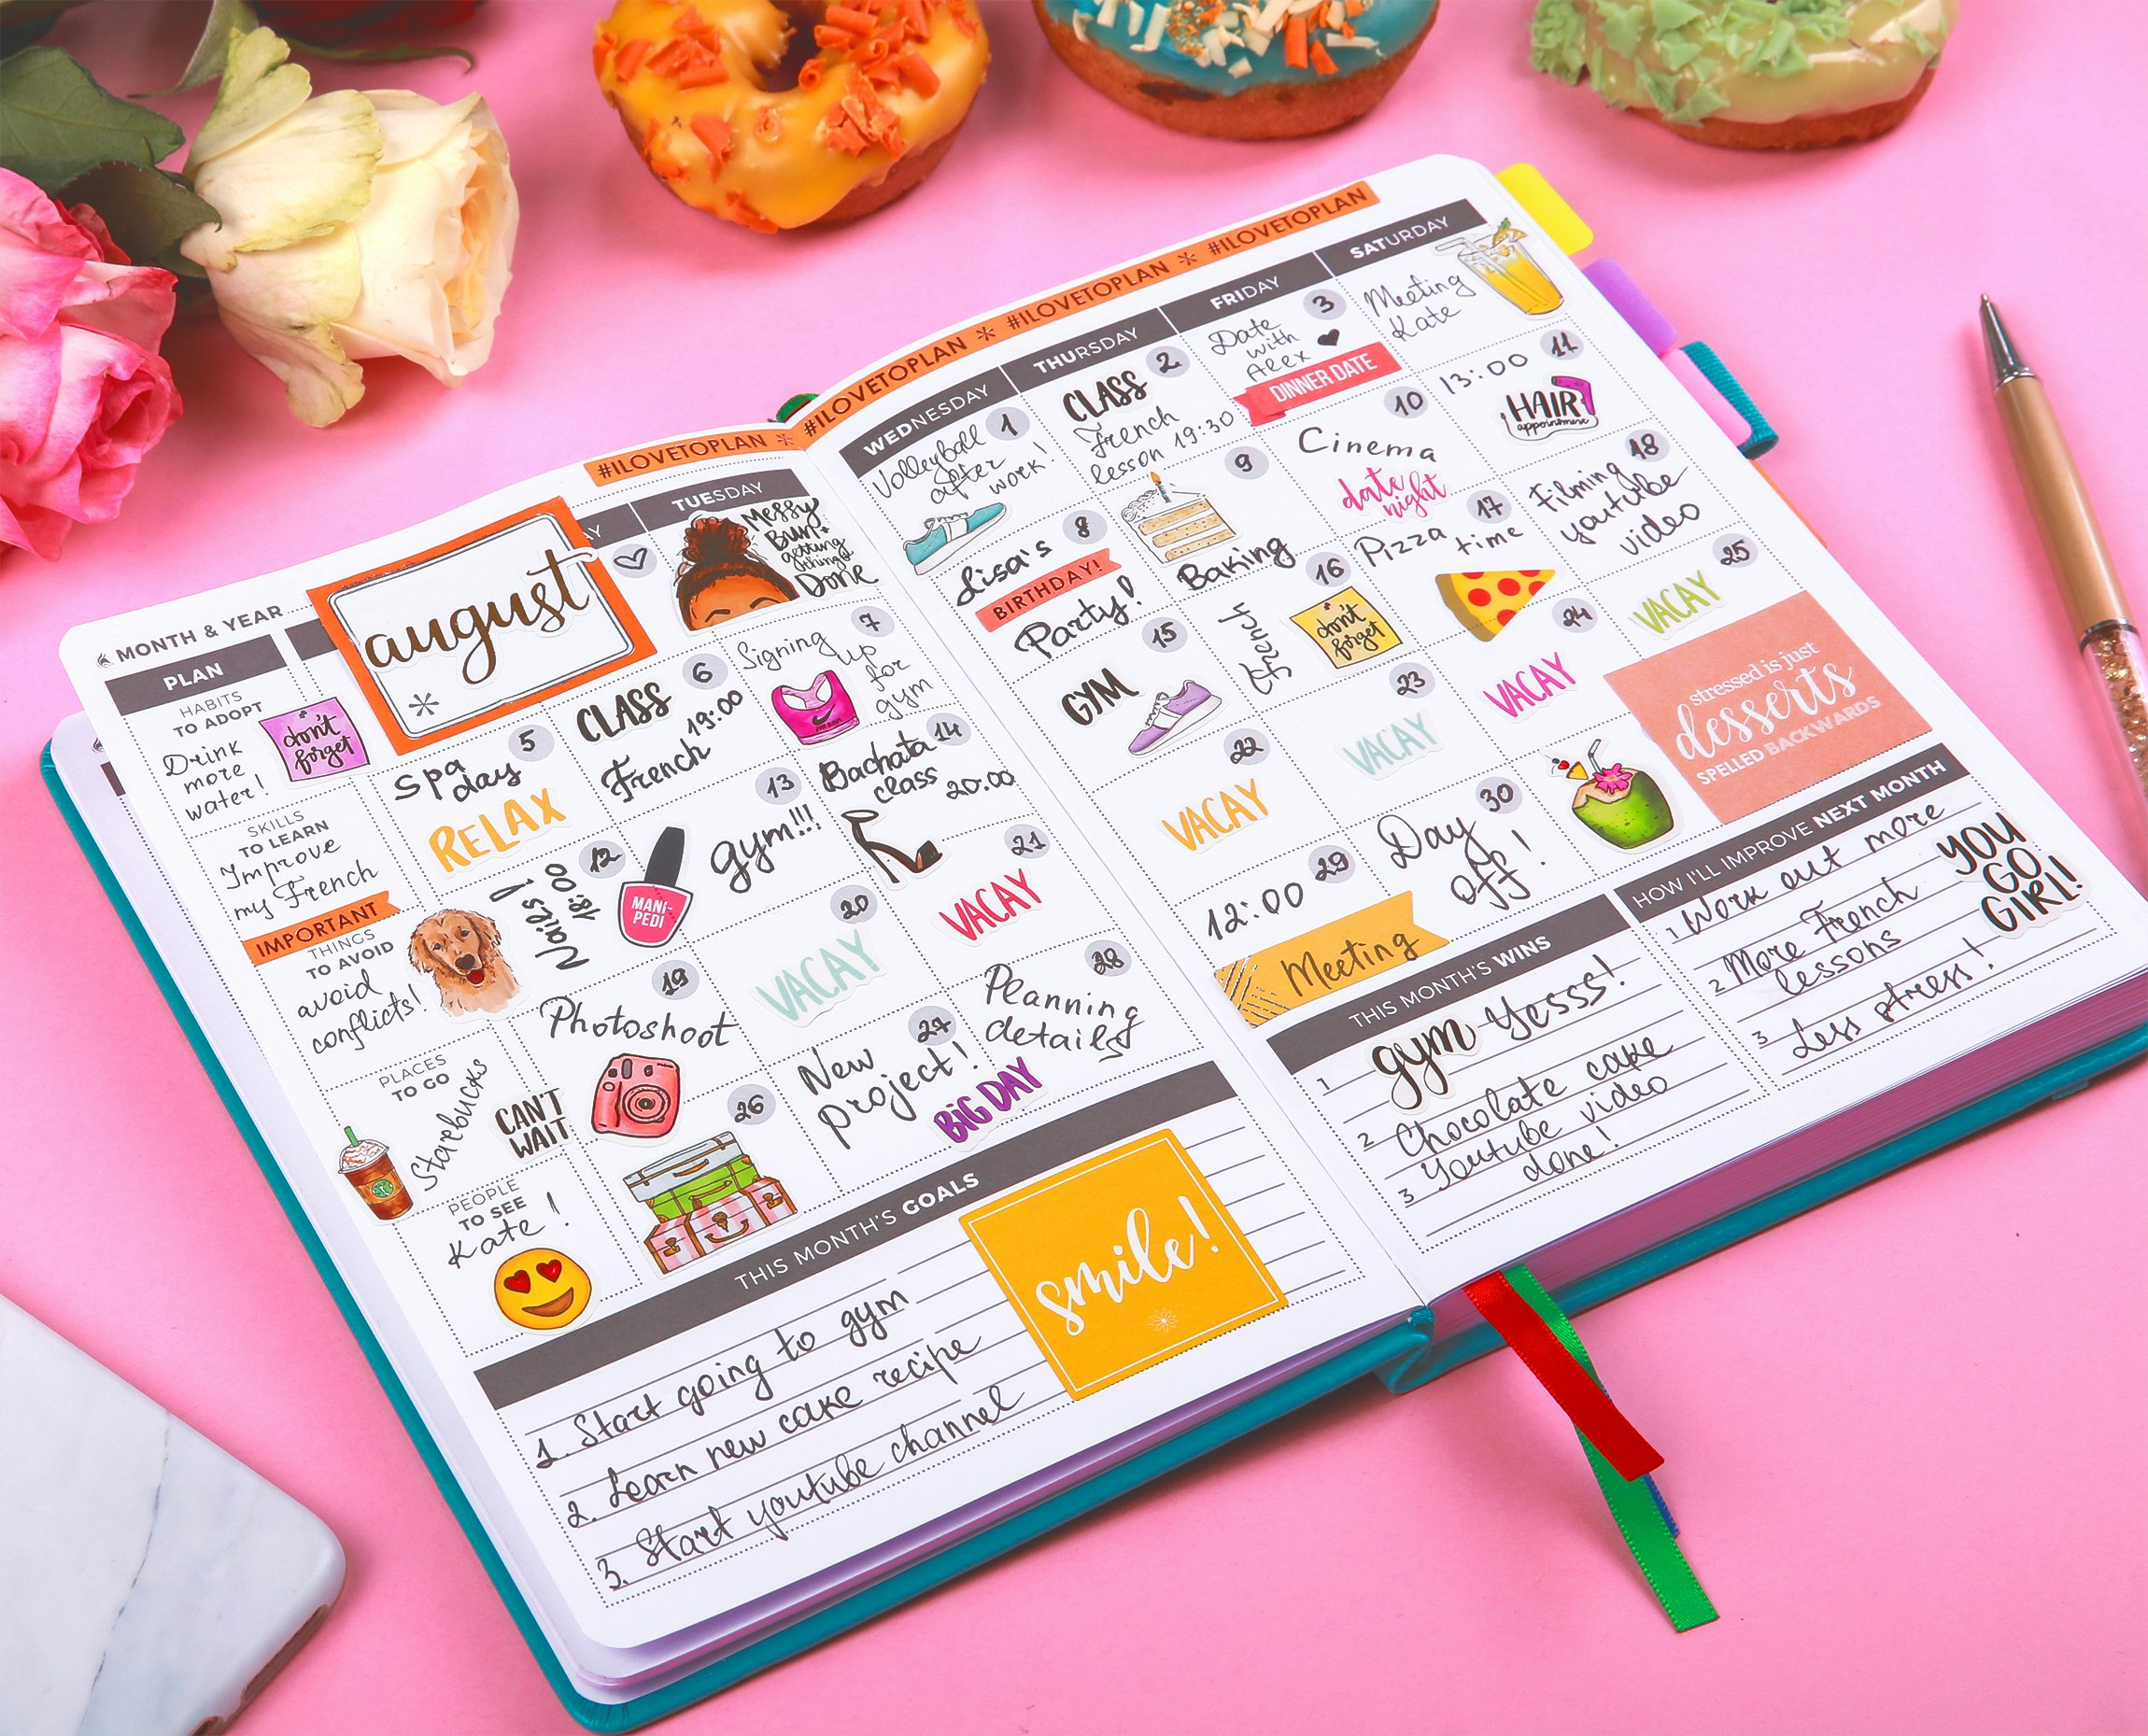 #ILOVETOPLAN * #ILOVETOPLAN * #ILOVETOPLAN * #ILOVETOPLAN
MONTH & YEAR
august
PLAN
AY
TUESDAY
Messy
Bun+
getting
things
Done
HABITS
TO ADOPT
Drink
more
water!
don't
forget
SKILLS
TO LEARN
Improve
my French
IMPORTANT
THINGS
TO AVOID
avoid
conflicts!
PLACES
TO GO
Starbucks
CAN'T
WAIT
PEOPLE
TO SEE
Kate!
5
Spa
day
RELAX
6
CLASS
19:00
French
7
Signing
up
for
gym
12
Nails!
18:00
MANI-
PEDI
13
gym!!!
14
Bachata
class
20:00
19
Photoshoot
20
VACAY
21
VACAY
26
27
New
project!
BIG DAY
28
Planning
details
THIS MONTH'S GOALS
1. Start going to gym
2. Learn new cake recipe
3. Start youtube channel
smile!
WEDNESDAY
THURSDAY
FRIDAY
SATURDAY
1
Volleyball
after
work!
2
CLASS
French
lesson 19:30
3
Date
with
Alex
DINNER DATE
Meeting
Kate
8
Lisa's
BIRTHDAY!
Party!
9
Baking
10
Cinema
date
night
11
13:00
HAIR
appointment
15
GYM
16
French
don't
forget
17
Pizza
time
18
Filming
youtube
video
22
VACAY
23
VACAY
24
VACAY
25
VACAY
29
12:00
Meeting
30
Day
off!
stressed is just
desserts
SPELLED BACKWARDS
THIS MONTH'S WINS
1 gym Yesss!
2 Chocolate cake
3 Youtube video
done!
HOW I'LL IMPROVE NEXT MONTH
1 Work out more
2 More French
lessons
3 Less stress!
YOU
GO
GIRL!